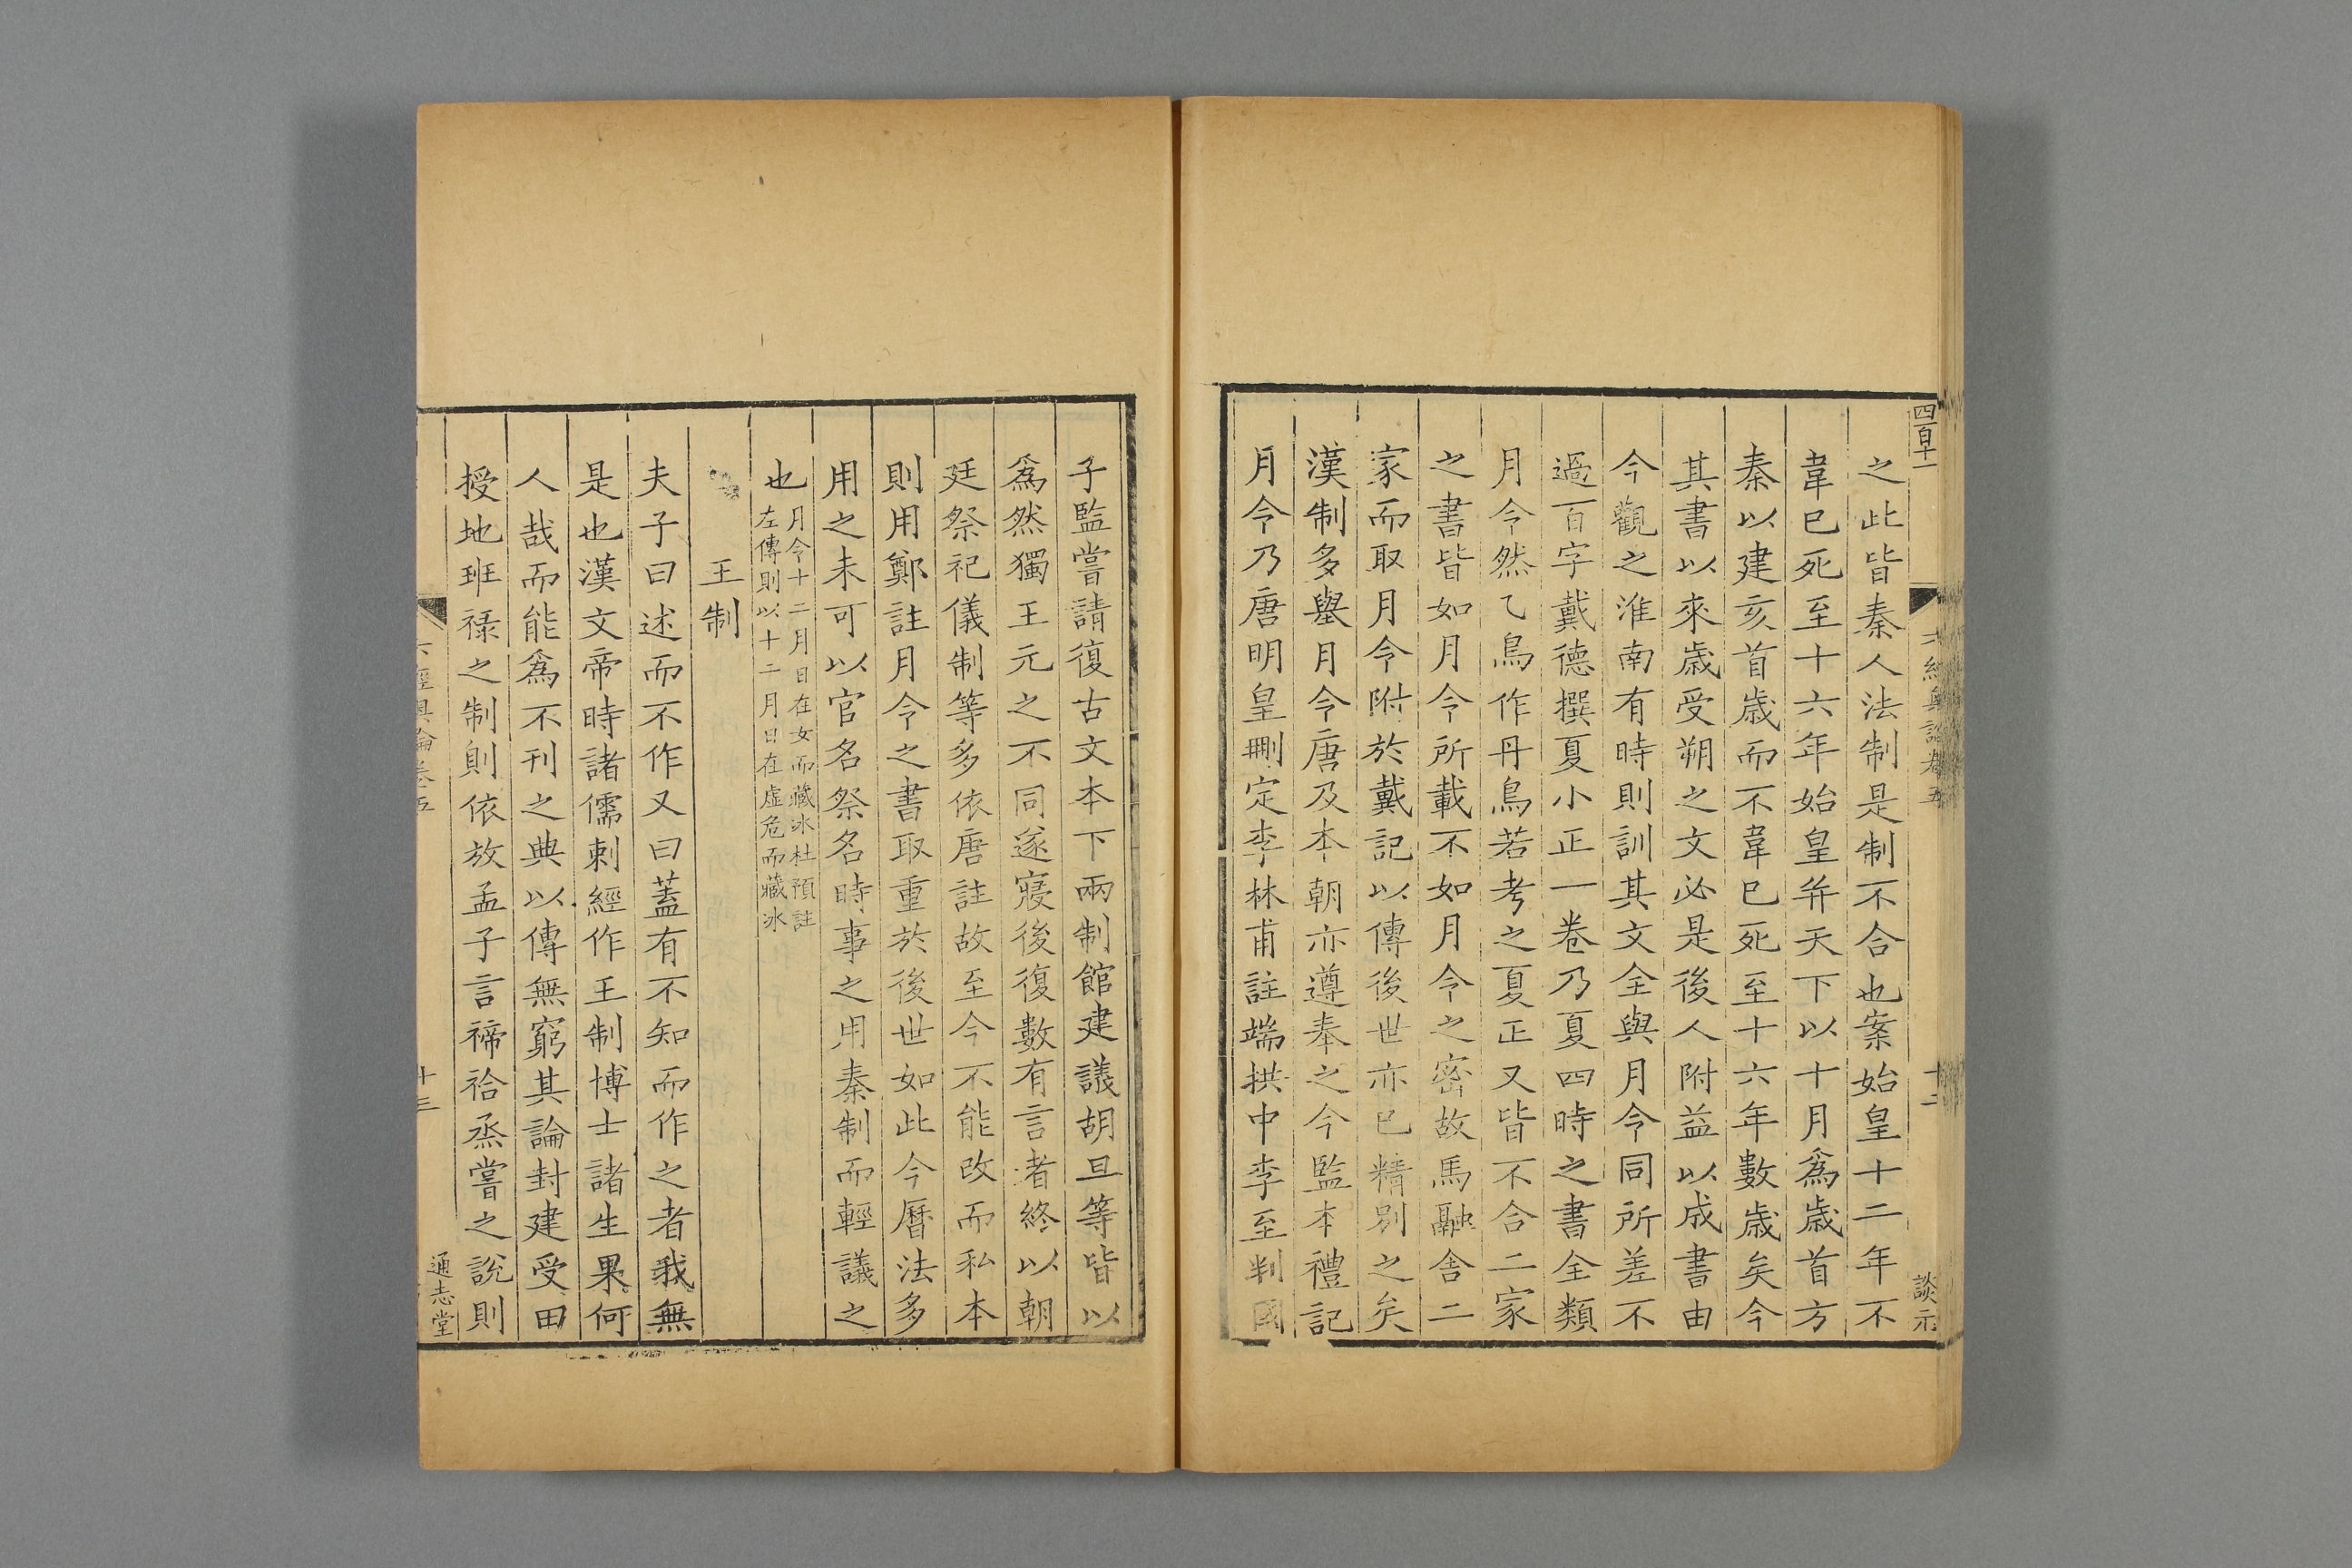 四百十一
六經奧論卷五
十二
談元
之此皆秦人法制是制不合也案始皇十二年不
韋巳死至十六年始皇并天下以十月爲歲首方
秦以建亥首歲而不韋巳死至十六年數歲矣今
其書以來歲受朔之文必是後人附益以成書由
今觀之淮南有時則訓其文全與月令同所差不
過百字戴德撰夏小正一卷乃夏四時之書全類
月令然乙鳥作丹鳥若考之夏正又皆不合二家
之書皆如月令所載不如月令之密故馬融舍二
家而取月令附於戴記以傳後世亦巳精別之矣
漢制多舉月令唐及本朝亦遵奉之今監本禮記
月令乃唐明皇刪定李林甫註端拱中李至判國
子監嘗請復古文本下兩制館建議胡旦等皆以
爲然獨王元之不同遂寢後復數有言者終以朝
廷祭祀儀制等多依唐註故至今不能改而私本
則用鄭註月令之書取重於後世如此今曆法多
用之未可以官名祭名時事之用秦制而輕議之
也月令十二月日在女而藏冰杜預註
左傳則以十二月日在虛危而藏冰
王制
夫子曰述而不作又曰蓋有不知而作之者我無
是也漢文帝時諸儒刺經作王制博士諸生果何
人哉而能爲不刊之典以傳無窮其論封建受田
授地班祿之制則依放孟子言禘祫烝嘗之說則
六經奧論卷五
十三
通志堂